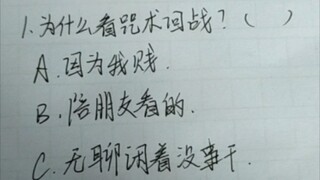 1.为什么看咒术回战？（ ）
A.因为我贱.
B.陪朋友看的.
C.无聊闲着没事干.